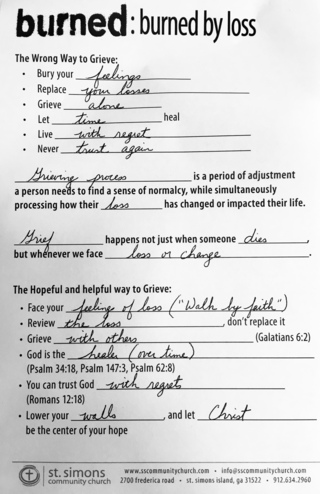 burned: burned by loss
The Wrong Way to Grieve:
• Bury your feelings
• Replace your losses
• Grieve alone
• Let time heal
• Live with regret
• Never trust again
Grieving process is a period of adjustment
a person needs to find a sense of normalcy, while simultaneously
processing how their loss has changed or impacted their life.
Grief happens not just when someone dies,
but whenever we face loss or change.
The Hopeful and helpful way to Grieve:
• Face your feeling of loss ("Walk by faith")
• Review the loss, don't replace it
• Grieve with others (Galatians 6:2)
• God is the healer (over time)
(Psalm 34:18, Psalm 147:3, Psalm 62:8)
• You can trust God with regrets
(Romans 12:18)
• Lower your walls, and let Christ
be the center of your hope
st. simons
community church
www.sscommunitychurch.com • info@sscommunitychurch.com
2700 frederica road • st. simons island, ga 31522 • 912.634.2960